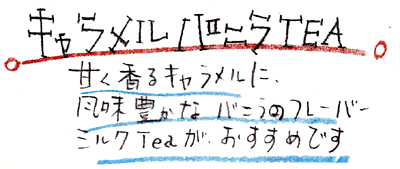 キャラメルバニラTEA
甘く香るキャラメルに、
風味豊かなバニラのフレーバー
ミルクTeaがおすすめです